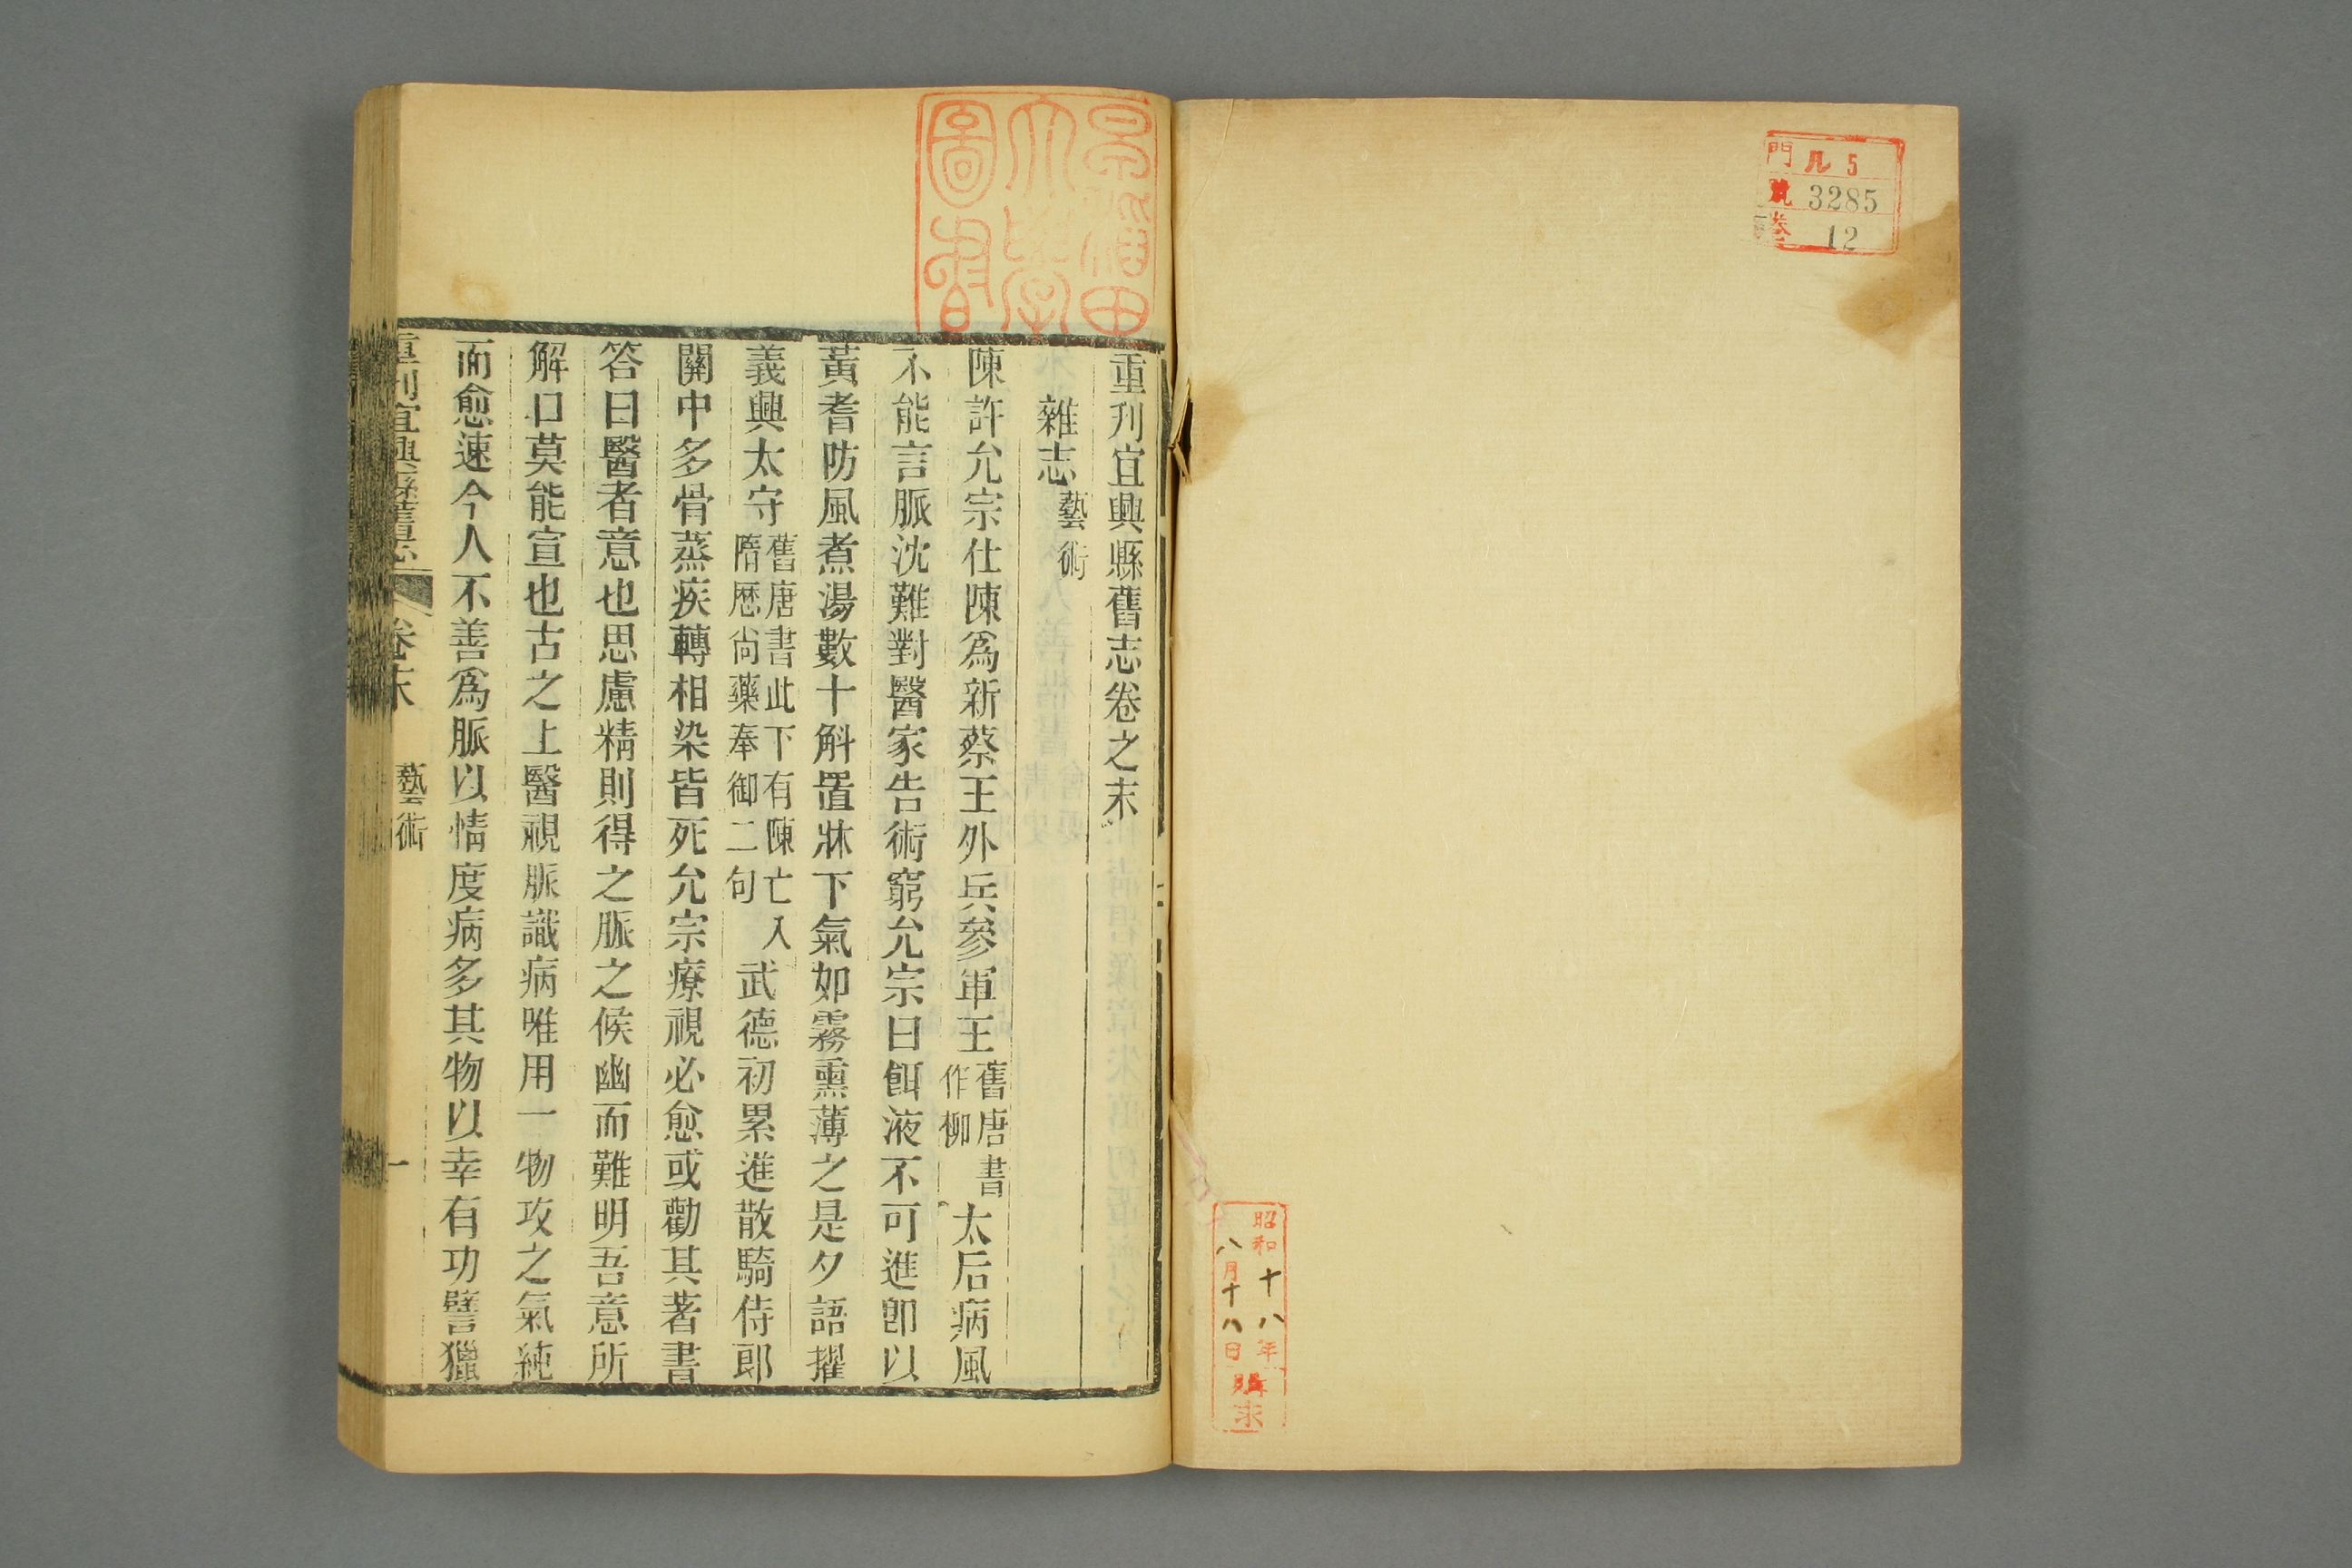 門 ル 5
號 3285
卷 12
昭和十八年
八月十八日
購求
早稻田
大學
圖書
重刊宜興縣舊志卷之末
雜志藝術
陳許允宗仕陳爲新蔡王外兵參軍王舊唐書作柳太后病風
不能言脈沈難對醫家告術窮允宗曰餌液不可進卽以
黃耆防風煮湯數十斛置牀下氣如霧熏薄之是夕語擢
義興太守舊唐書此下有陳亡入隋歷尚藥奉御二句武德初累進散騎侍郎
關中多骨蒸疾轉相染皆死允宗療視必愈或勸其著書
答曰醫者意也思慮精則得之脈之候幽而難明吾意所
解口莫能宣也古之上醫視脈識病唯用一物攻之氣純
而愈速今人不善爲脈以情度病多其物以幸有功譬獵
重刊宜興縣舊志 卷末 藝術 一